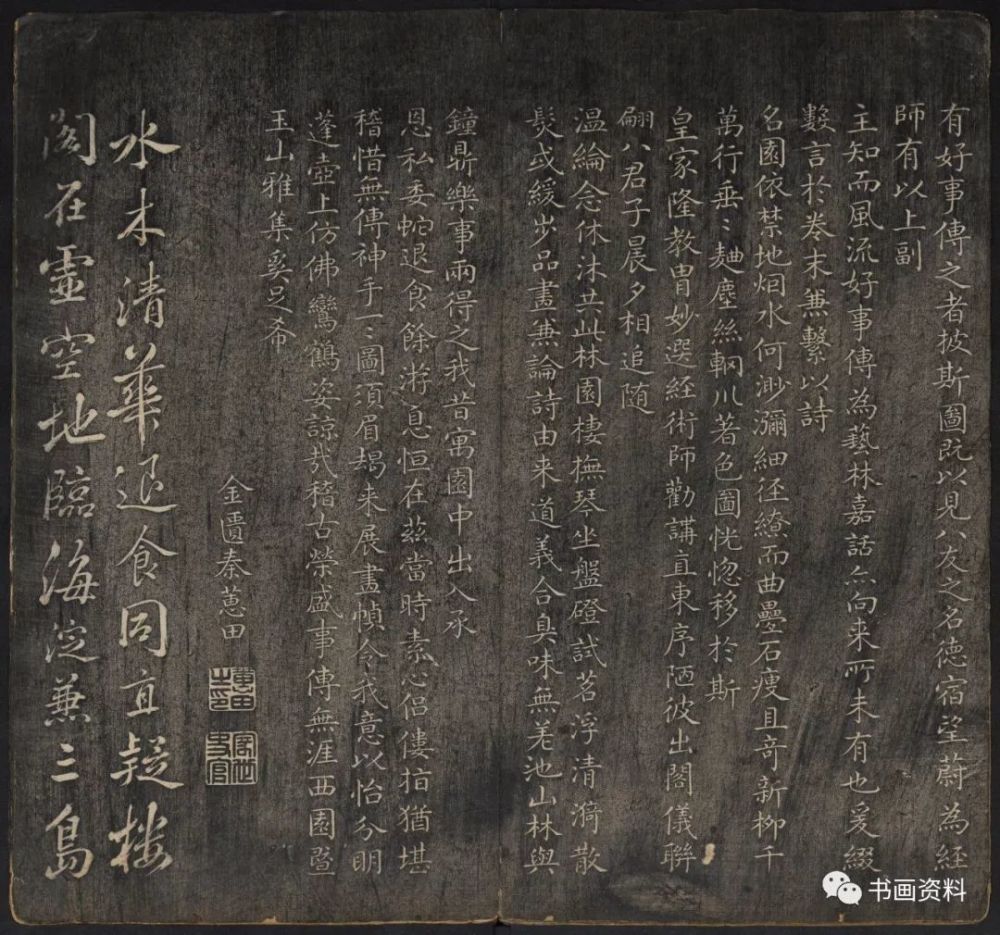 有好事傳之者披斯圖既以見八友之名德宿望蔚為経
師有以上副
主知而風流好事傳為藝林嘉話亦向来所未有也爰綴
數言於卷末兼繫以詩
名園依禁地烱水何渺瀰細徑繚而曲壘石瘦且奇新柳千
萬行垂〻麹塵絲輞川著色圖恍惚移於斯
皇家隆教胄妙選經術師勸講直東序陋彼出閣儀聯
翩八君子晨夕相追隨
温綸念休沐共此林園棲撫琴坐盤磴試茗浮清漪散
髮或緩步品畫兼論詩由来道義合臭味無差池山林與
鐘鼎樂事兩得之我昔寓園中出入承
恩私委蛇退食餘游息恒在茲當時素心侶僂指猶堪
稽惜無傳神手一〻圖須眉朅来展畫幀令我意以怡分明
蓬壺上仿佛鸞鶴姿諒哉稽古榮盛事傳無涯西園暨
玉山雅集奚足希
金匱秦蕙田
蕙田之印
水木清華退食同直疑樓
閣在靈空地臨海淀兼三島
书画资料